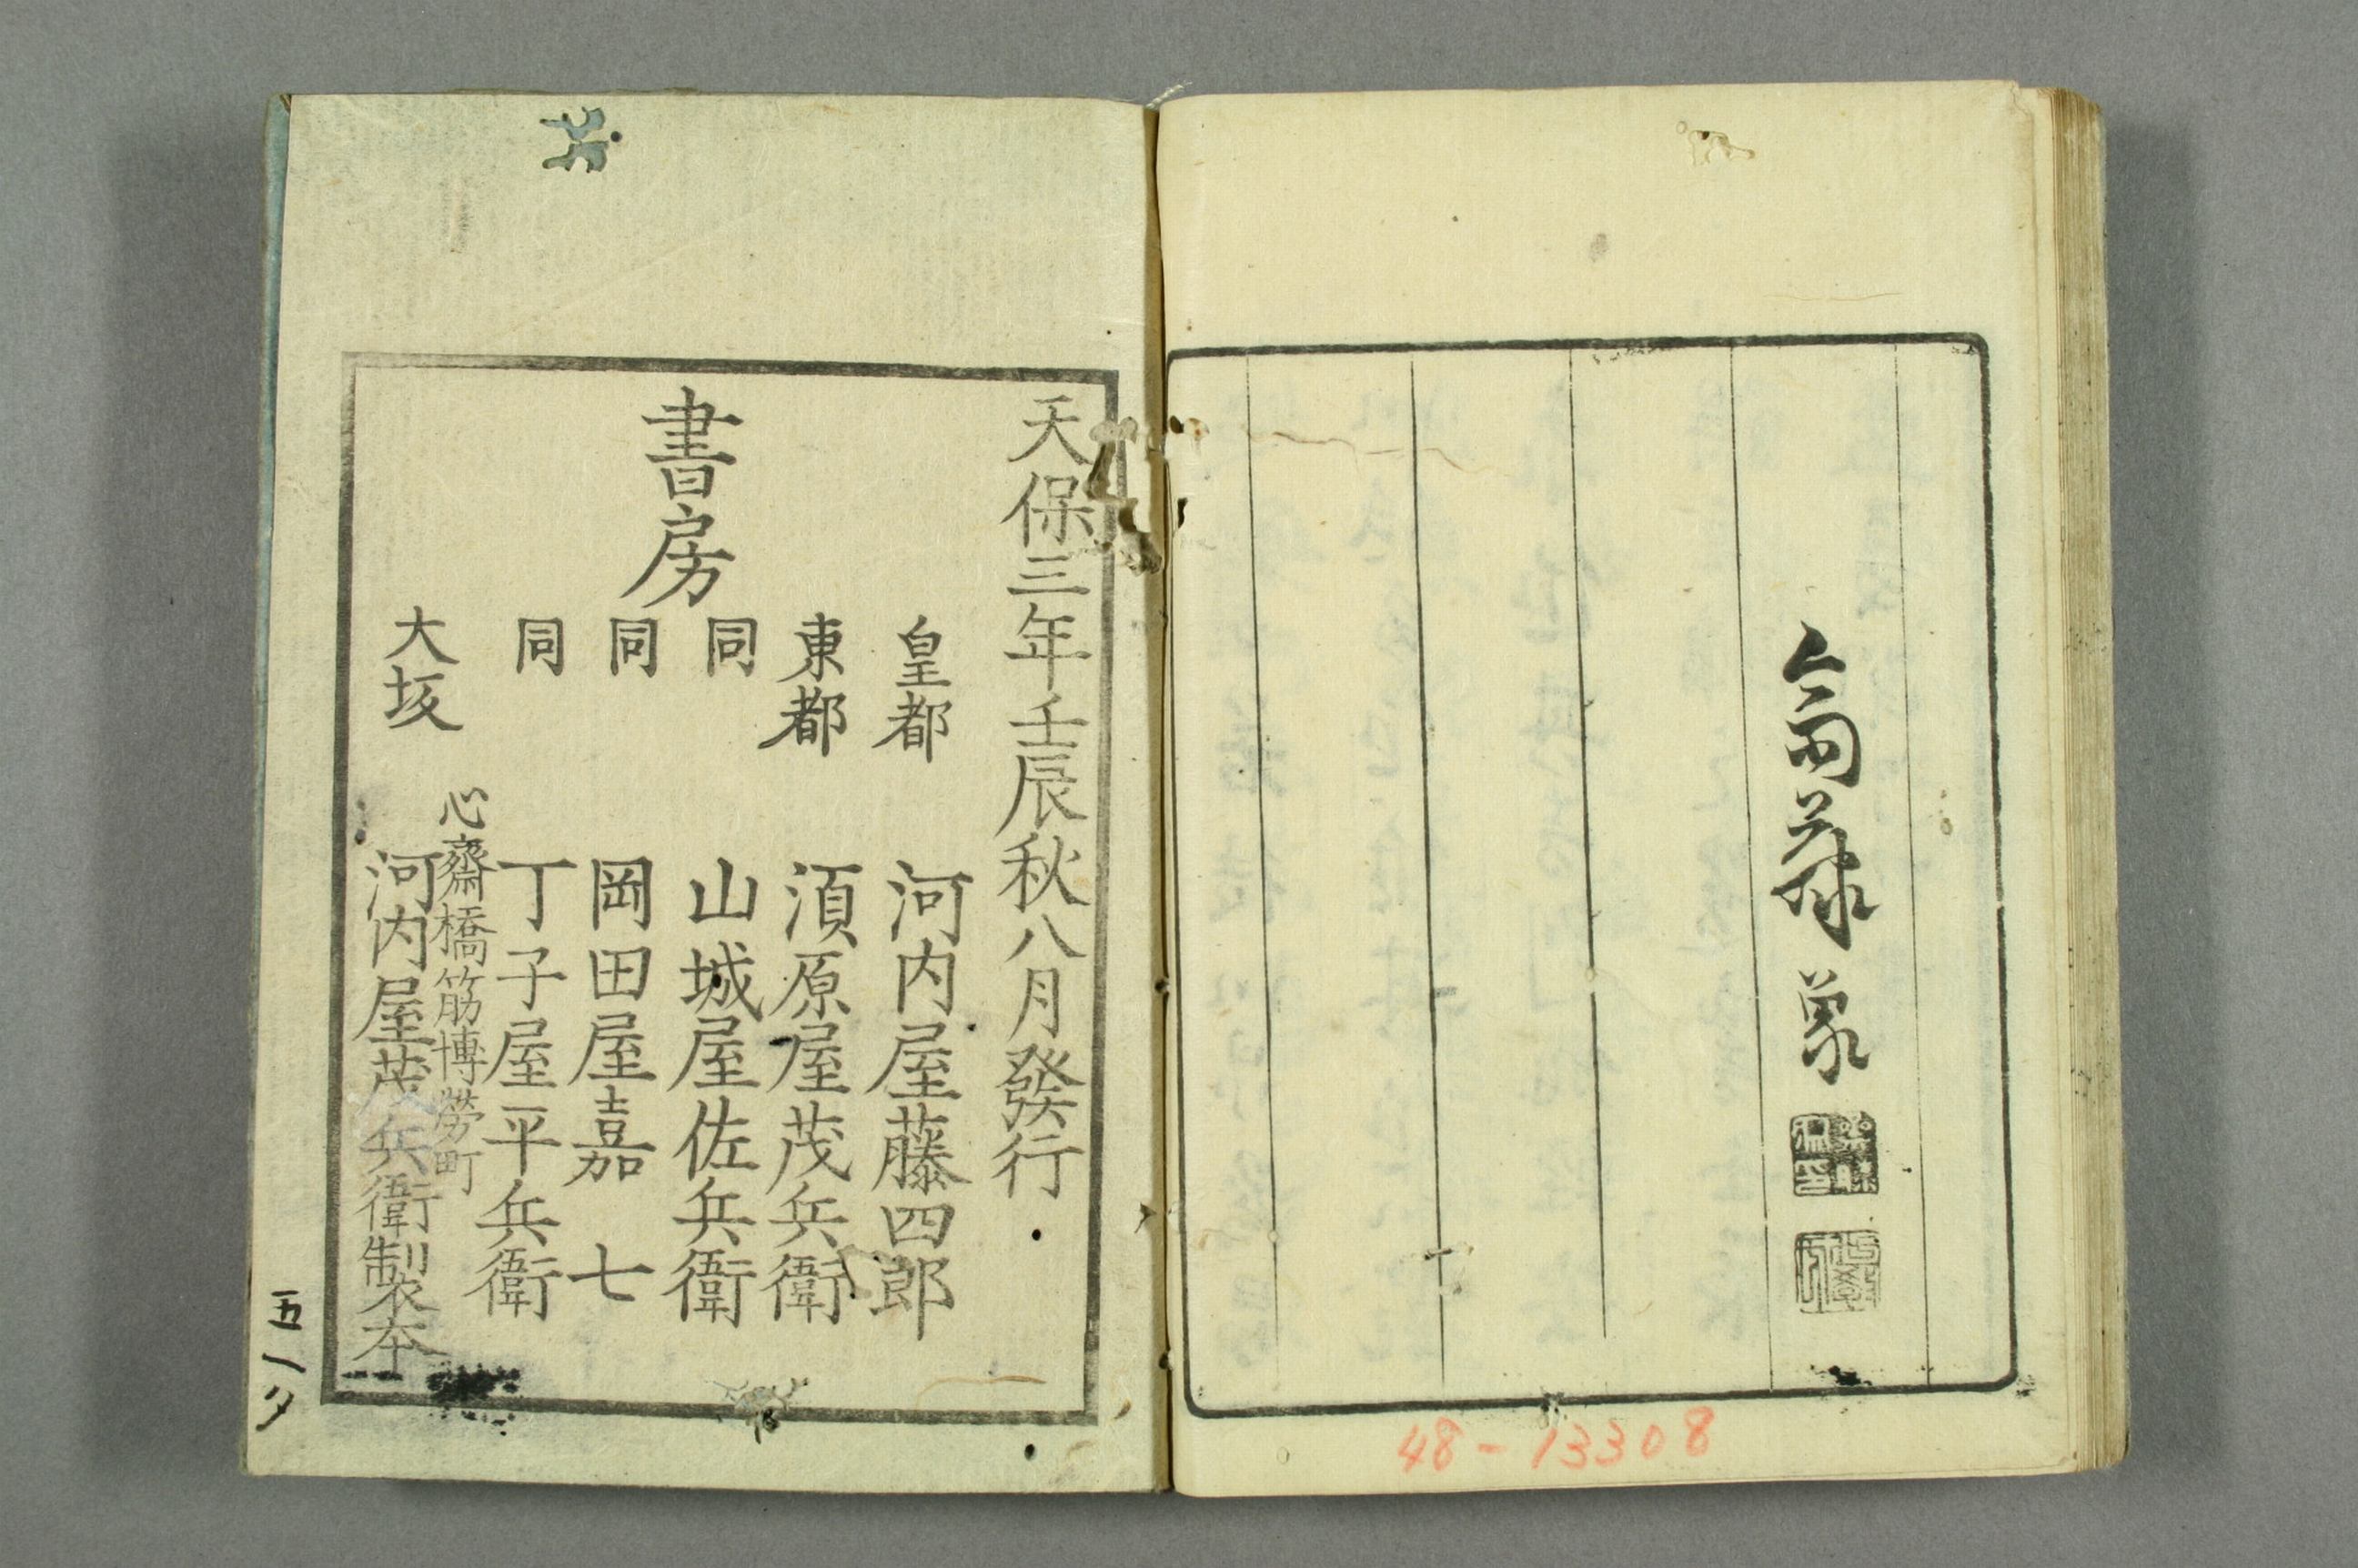 48-13308
天保三年壬辰秋八月發行
書房
皇都 河内屋藤四郎
東都 須原屋茂兵衛
同 山城屋佐兵衛
同 岡田屋嘉七
同 丁子屋平兵衛
心齋橋筋博勞町
大坂 河内屋茂兵衛製本